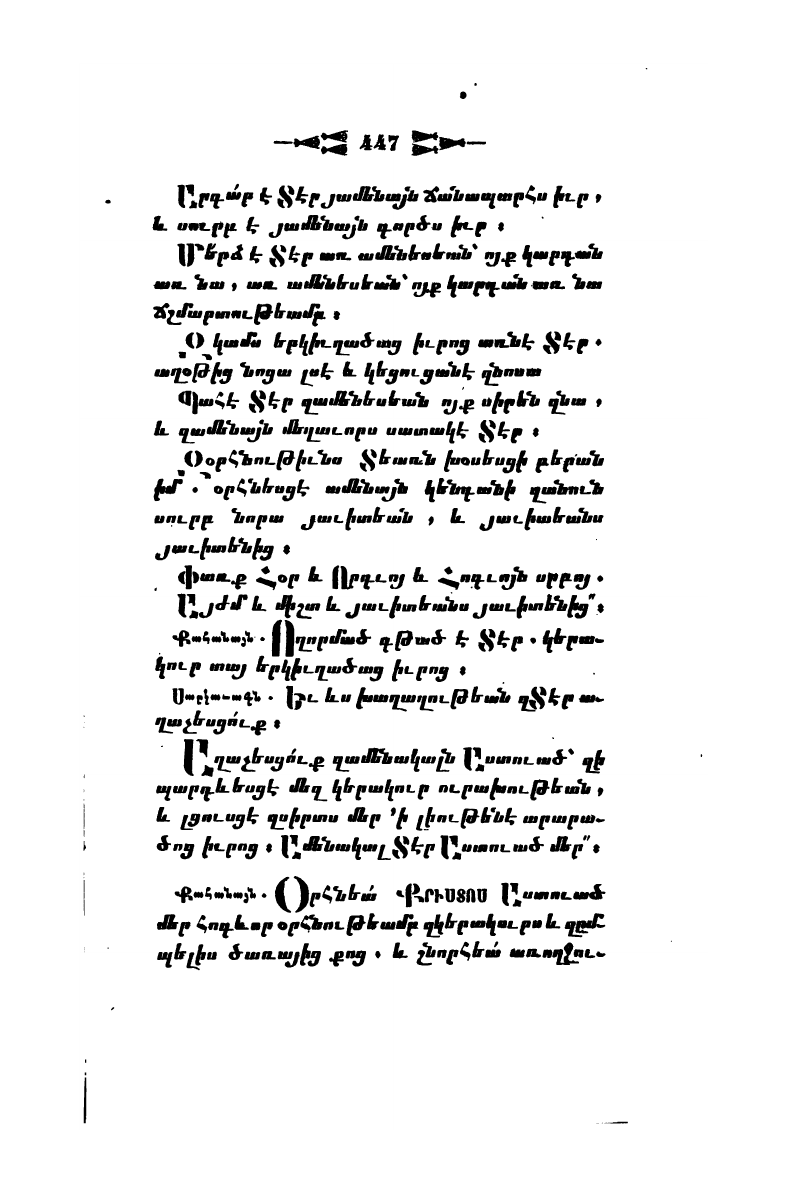 447
Արդար է Տէր յամենայն ճանապարհս իւր ,
և սուրբ է յամենայն գործս իւր ։
Մերձ է Տէր առ ամենեսեան՝ ոյք կարդան
առ նա , առ ամենեսեան՝ ոյք կարդան առ նա
ճշմարտութեամբ ։
Զկամս երկիւղածաց իւրոց առնէ Տէր .
աղօթից նոցա լսէ և կեցուցանէ զնոսա
Պահէ Տէր զամենեսեան ոյք սիրեն զնա ,
և զամենայն մեղաւորս սատակէ Տէր ։
Զօրհնութիւնս Տեառն խօսեսցի բերան
իմ . օրհնեսցէ ամենայն կենդանի զանուն
սուրբ նորա յաւիտեան , և յաւիտեանս
յաւիտենից ։
Փառք Հօր և Որդւոյ և Հոգւոյն սրբոյ .
Այժմ և միշտ և յաւիտեանս յաւիտենից՞ ։
Քահանայն . Ողորմած գթած է Տէր . կերա֊
կուր տայ երկիւղածաց իւրոց ։
Սարկաւագն . Եւ ևս խաղաղութեան զՏէր ա֊
ղաչեսցուք ։
Աղաչեսցուք զամենակալն Աստուած՝ զի
պարգևեսցէ մեզ կերակուր ուրախութեան ,
և լցուսցէ զսիրտս մեր ՚ի լիութենէ արարա֊
ծոց իւրոց ։ Ամենակալ Տէր Աստուած մեր՞ ։
Քահանայն . Օրհնեա՛ ՔՐԻՍՏՈՍ Աստուած
մեր հոգևոր օրհնութեամբ զկերակուրս և զըմ֊
պելիս ծառայից քոց . և շնորհեա՛ առողջու֊